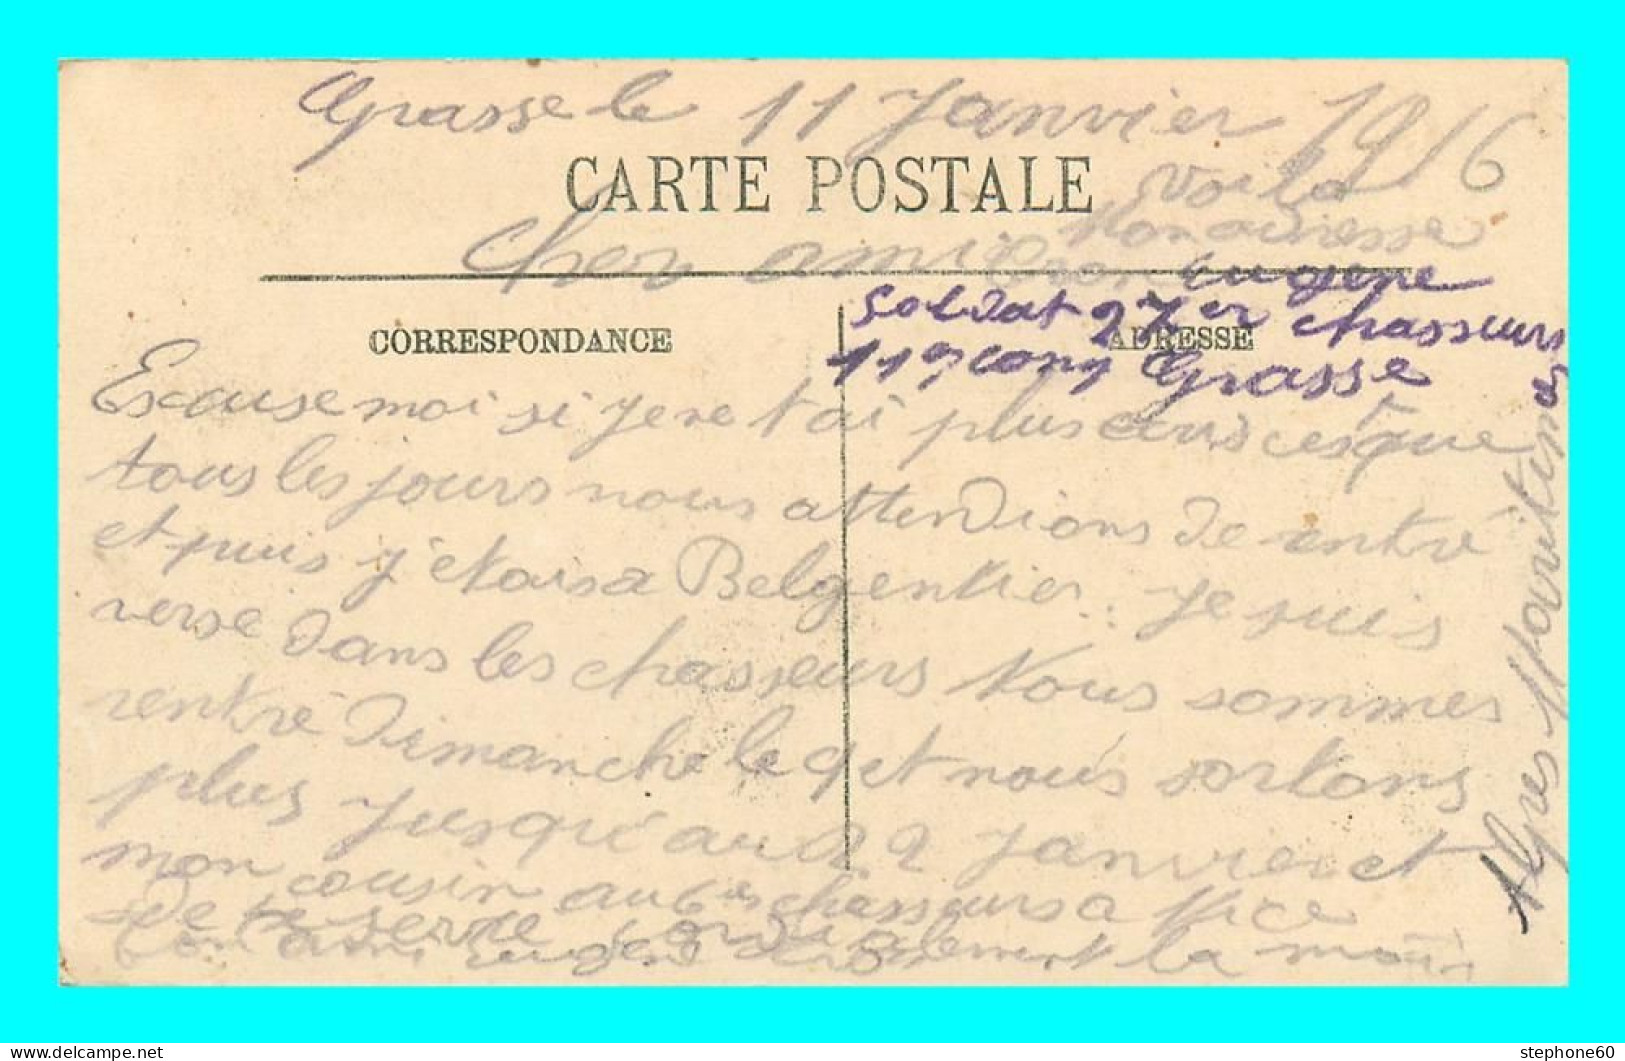 Grasse le 11 Janvier 1916
CARTE POSTALE
Voila
mon adresse
Cher ami
Eugene
Soldat 27er chasseurs
11e comp Grasse
Alpes Maritimes
CORRESPONDANCE
ADRESSE
Excuse moi si je ne t ai plus cesque
tous les jours nous attendions de rentré
et puis j'etais a Belgentier. Je suis
verse dans les chasseurs Nous sommes
rentré Dimanche le 9 et nous sortons
plus jusqu'au 22 Janvier et
mon cousin au 6es chasseurs a Nice
Je te serre cordialement la main
Ton ami Eugene
stephone60